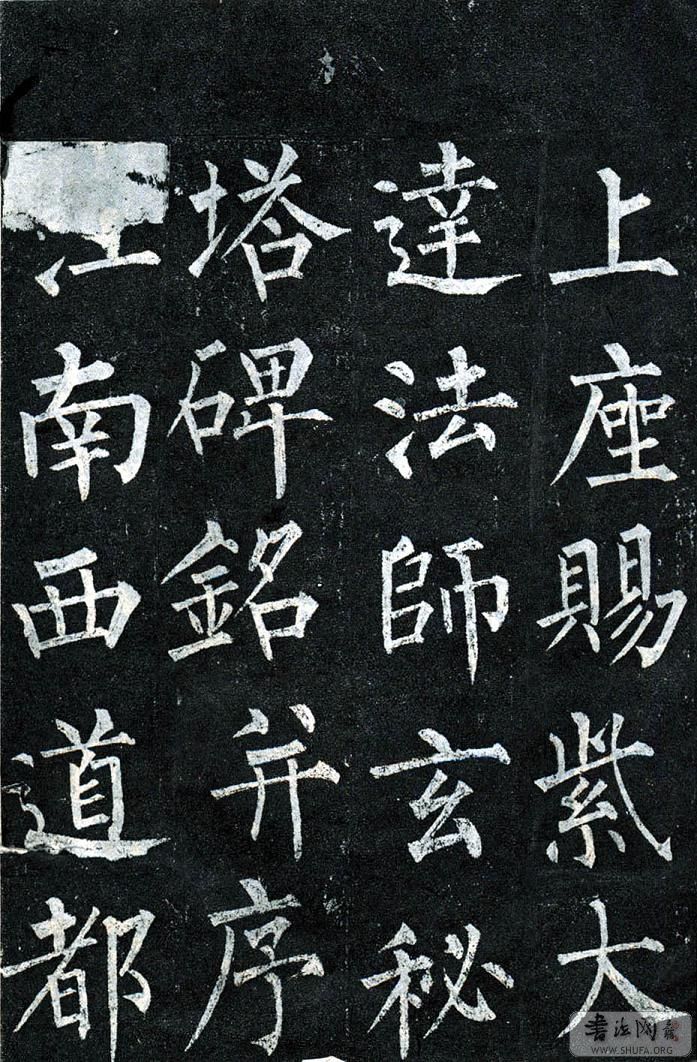 上座賜紫大
達法師玄秘
塔碑銘并序
江南西道都
書法网
WWW.SHUFA.ORG